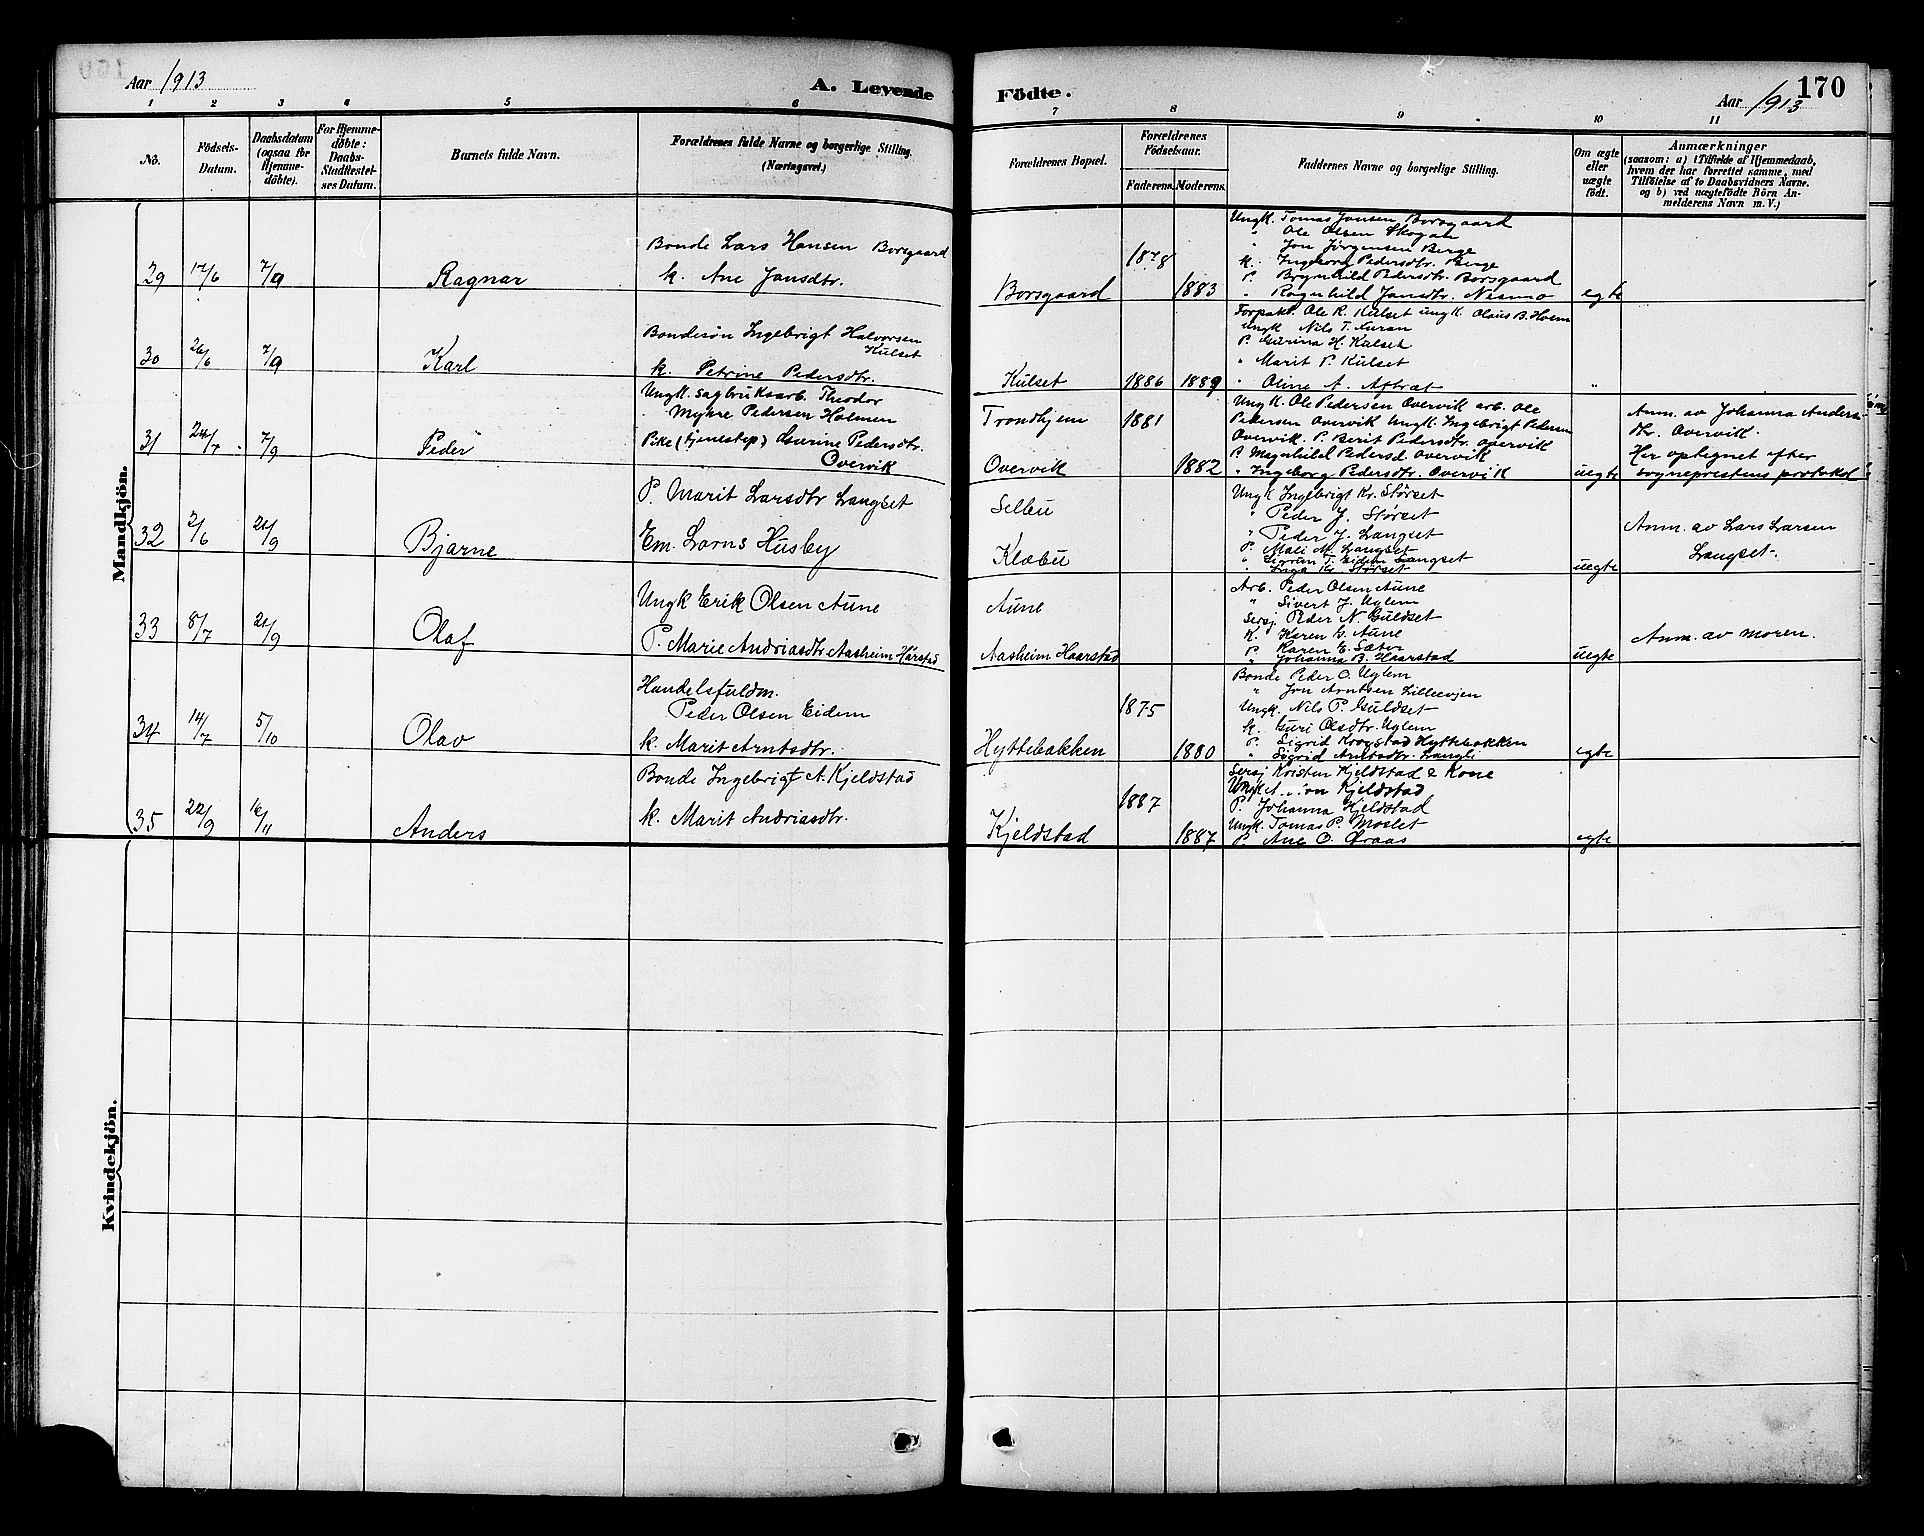 Aar 1913
A. Levende
1 2 3 4 5 6
No.
Födsels-
Datum.
Daabsdatum
(ogsaa for
Hjemme-
döbte).
For Hjemme-
döbte:
Daabs-
Stadfæstel-
ses Datum.
Barnets fulde Navn.
Forældrenes fulde Navne og borgerlige Stilling.
(Næringsvei.)
Mandkjön.
29 17/6 7/9 Ragnar
Bonde Lars Hansen Borsgaard
k. Ane Jonsdtr.
30 26/6 7/9 Karl
Bondesön Ingebrigt Halvorsen
Kulset
k. Petrine Pedersdtr.
31 24/7 7/9 Peder
Ungk. sagbruksarb. Theodor
Pedersen Holmen
Pike (tjenestep) Gurine Pedersdtr.
Overvik
32 2/6 21/9 Bjarne
P. Marit Larsdtr Langset
Em. Husby
33 8/7 21/9 Olaf
Ungk Erik Olsen Aune
P. Marie Andriasdtr Aasheim Hårstad
34 14/7 5/10 Olav
Handelsfuldm.
Peder Olsen Eidem
k. Marit Arntsdtr.
35 22/9 16/11 Anders
Bonde Ingebrigt A. Kjeldstad
k. Marit Andriasdtr.
Kvindekjön.
Födte.
170
Aar 1913
7 8 9 10 11
Forældrenes Bopæl.
Forældrenes
Födselsaar.
Faderens. Moderens.
Faddernes Navne og borgerlige Stilling.
Om ægte
eller
uægte
födt.
Anmærkninger
(saasom: a) i Tilfælde af Hjemmedaab,
hvem der har forrettet samme, med
Tilföielse af to Daabsvidners Navne.
og b) ved uægtefödte Börn An-
melderens Navn m. V.)
Borsgaard 1878 1883
Ungk. Tomas Jonsen Borsgaard
" Ole Olsen Skogan
" Jon Jörgensen Berge
k. Ingeborg Pedersdtr. Berge
P. Brynhild Pedersdtr. Borsgaard
" Ragnhild Jonsdtr. Nesmo
egte
Kulset 1886 1889
Forpakt. Ole R. Kulset ungk Olaus B. Hoem
ungk Nils T. Auran
P. Gurina H. Kulset
" Marit P. Kulset
" Oline A. Aftret
"
Trondhjem 1881
Overvik 1882
Ungk. Ole Pedersen Overvik arb. Ole
Pedersen Overvik Ungk. Ingebrigt Pedersen
Overvik. P. Berit Pedersdtr. Overvik
P. Magnhild Pedersd. Overvik
" Ingeborg Pedersdtr. Overvik
uegte
Anm. av Johanna Anders-
dtr. Overvik.
Her optegnet efter
sogneprestens protokol
Selbu
Klæbu
Ungk Ingebrigt Kr. Störset
" Peder J. Störset
" Peder J. Langset
P. Mali M. Langset
" T. Eidem Langset
" Inga Kr. Störset
uegte
Anm. av Lars Larsen
Langset.
Aune
Aasheim Haarstad
Arb. Peder Olsen Aune
" Sivert J. Uglem
Sersj Peder N. Guldset
K. Karen G. Aune
P. Karen E. Sæter
" Johanna B. Haarstad
uegte
Anm. av moren.
Hyttebakken 1875 1880
Bonde Peder O. Uglem
" Jon Arntsen Lilleevjen
Ungk. Nils P. Guldset
k. Guri Olsdtr. Uglem
P. Sigrid Krogstad Hyttebakken
" Sigrid Arntsdtr. Langli
egte
Kjeldstad 1887 1887
Sersj Kristen Kjeldstad & Kone
Ungk Kjeldstad
P. Johanna Kjeldstad
Ungk. Tomas P. Moslet
P. Ane O. Draas
egte